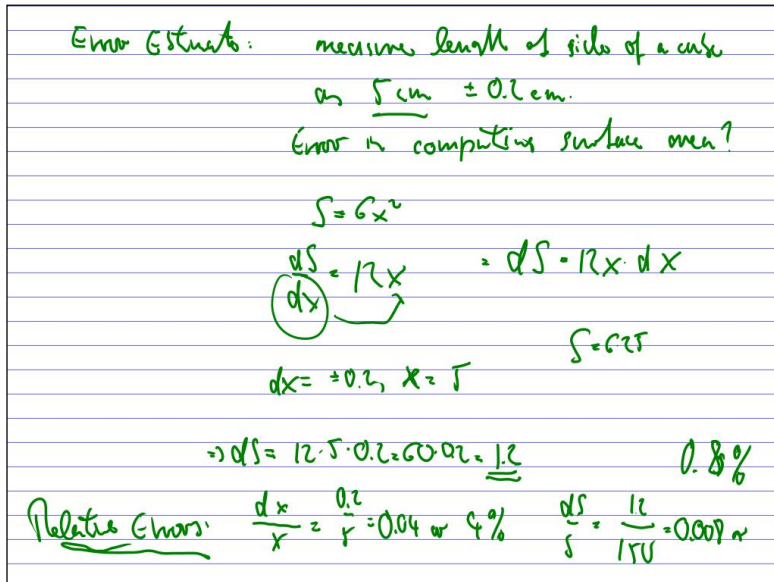 Error Estimate: measure length of side of a cube
as 5 cm ± 0.2 cm.
Error in computing surface area?
S = 6x²
dS/dx = 12x = dS = 12x · dx
S = 6·25
dx = ±0.2, x = 5
=> dS = 12·5·0.2 = 60·0.2 = 1.2
0.8%
Relative Errors: dx/x = 0.2/5 = 0.04 or 4% dS/S = 1.2/150 = 0.008 or